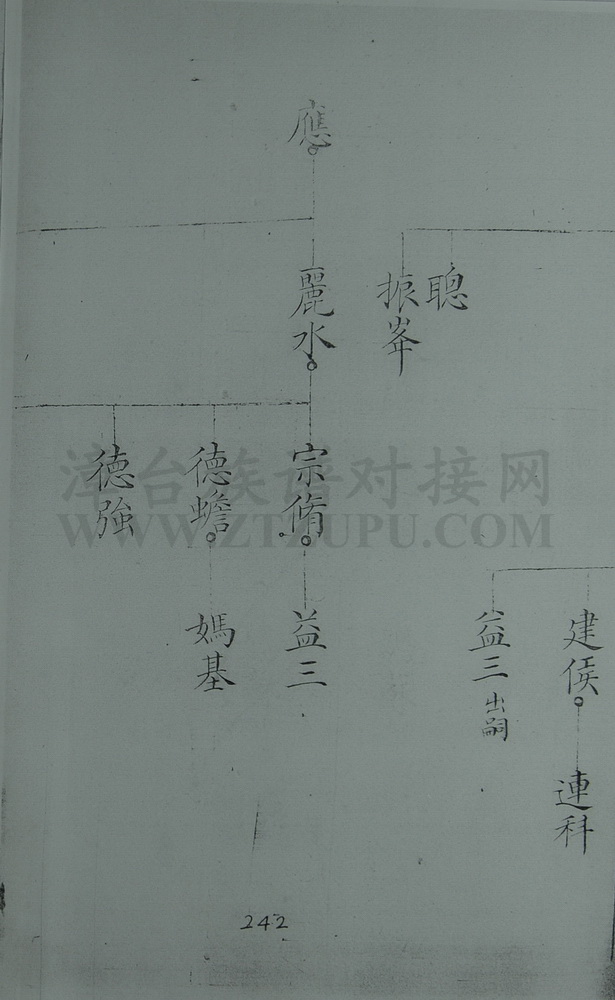 應
聰
振峯
麗水
宗脩
德蟾
德強
建侯
益三 出嗣
益三
媽基
連科
漳台族谱对接网
WWW.ZTZUPU.COM
242